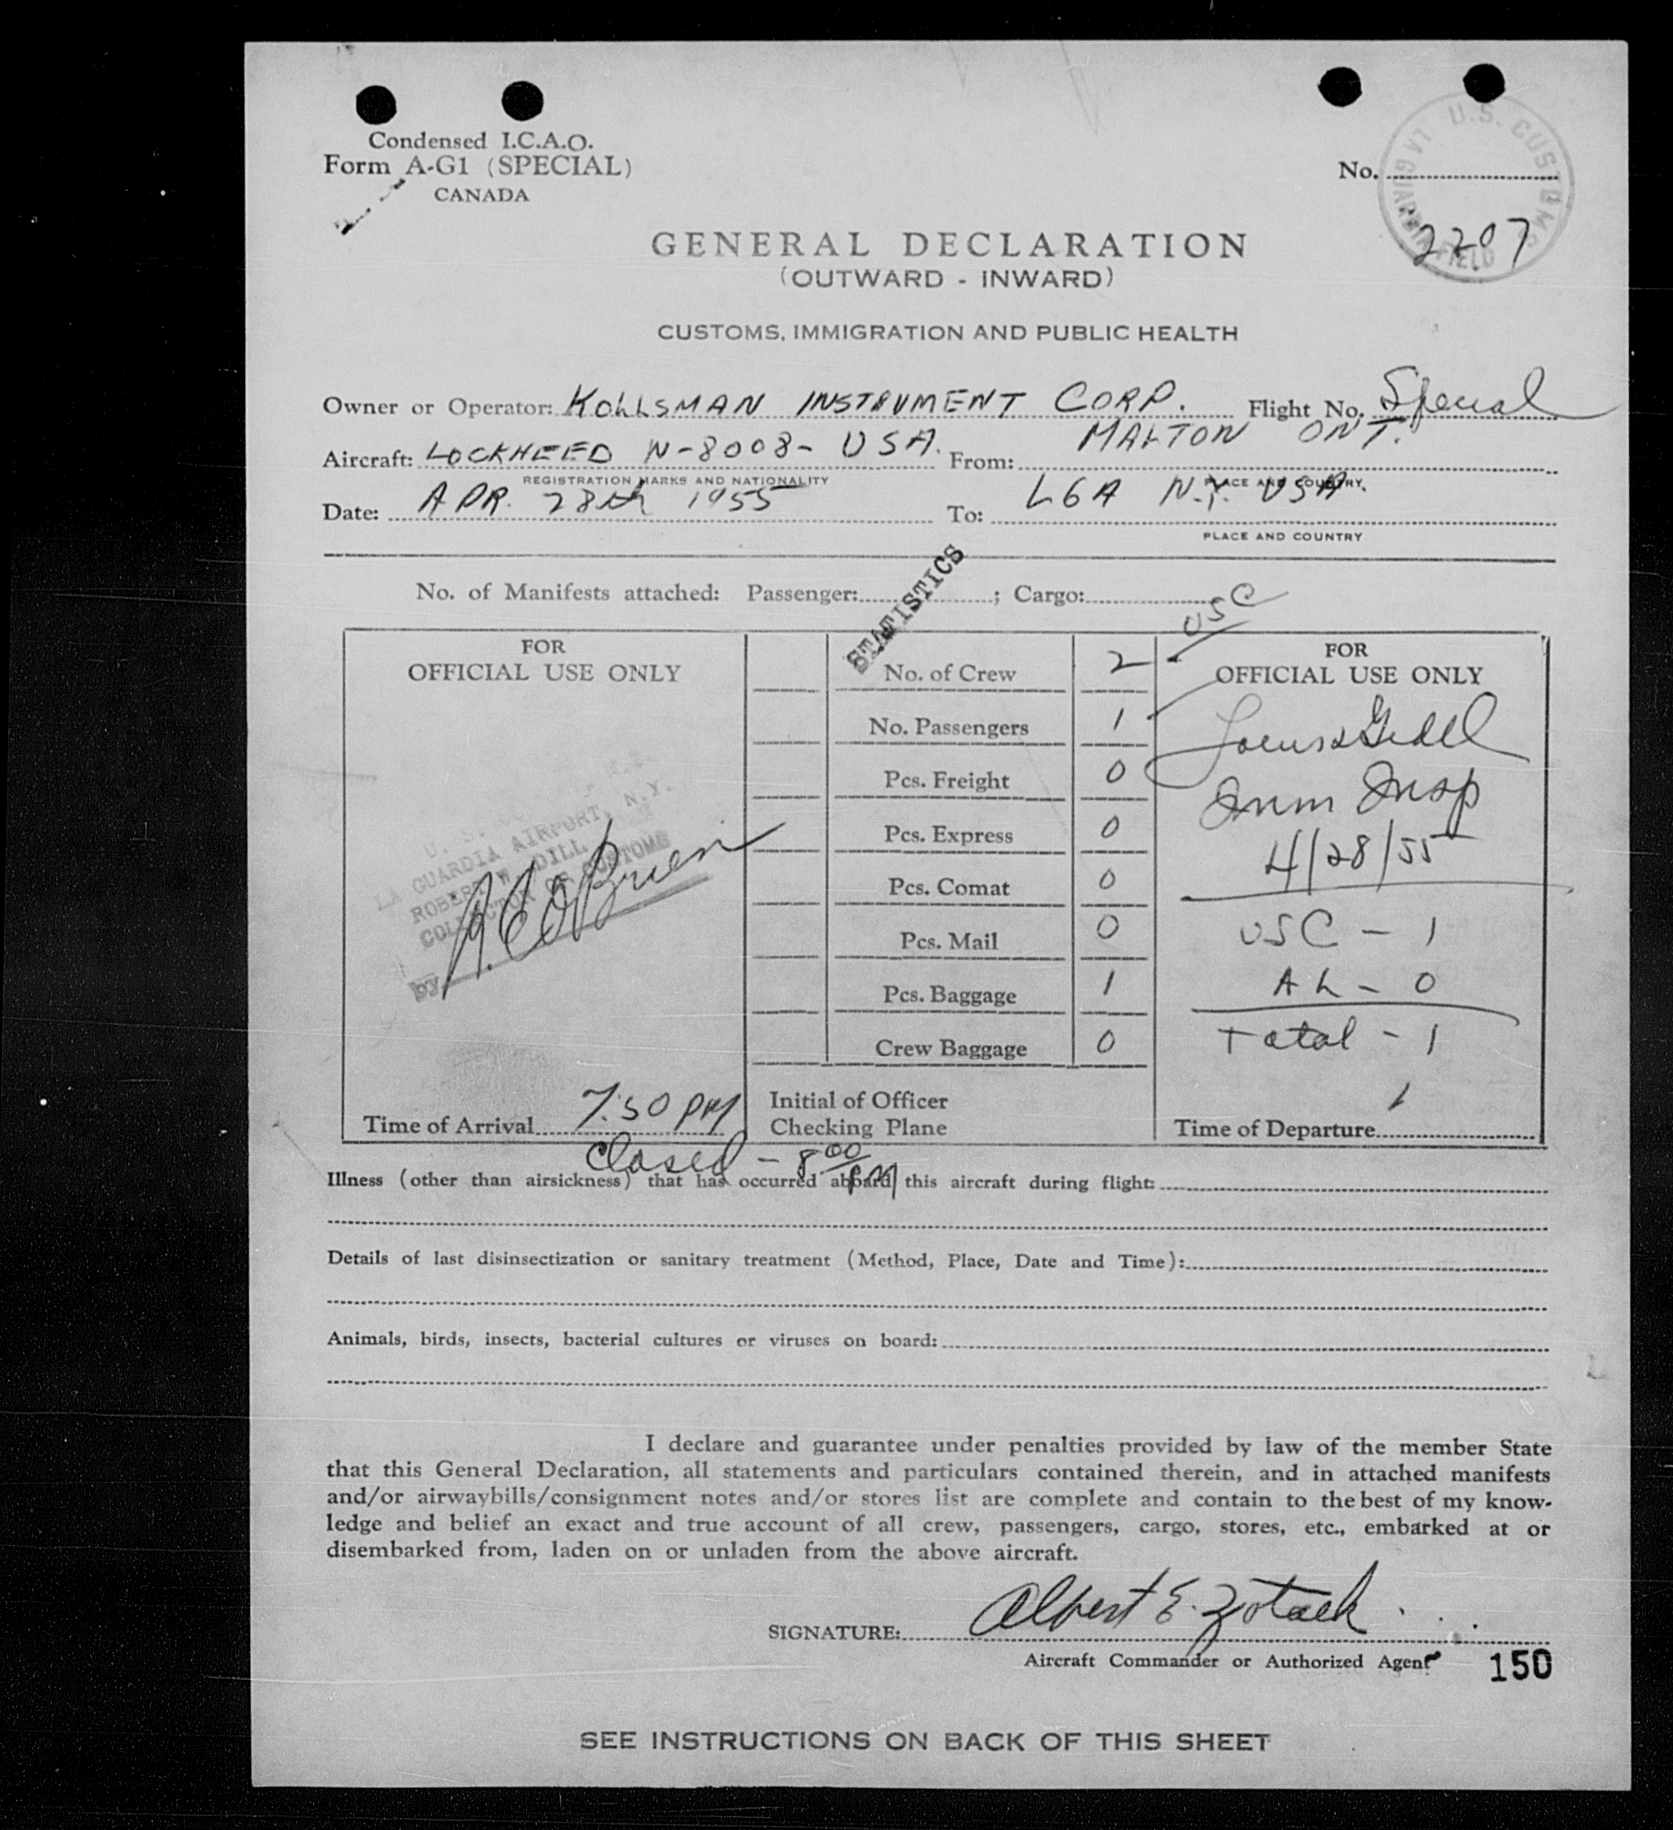 Condensed I.C.A.O.
Form A-G1 (SPECIAL)
CANADA
No.
U.S. CUSTOMS
LA GUARDIA FIELD
2207
GENERAL DECLARATION
(OUTWARD - INWARD)
CUSTOMS, IMMIGRATION AND PUBLIC HEALTH
Owner or Operator: KOLLSMAN INSTRUMENT CORP. Flight No. Special
Aircraft: LOCKHEED N-8008- USA. From: MALTON ONT.
REGISTRATION MARKS AND NATIONALITY PLACE AND COUNTRY
Date: APR. 28th 1955 To: LGA N.Y. USA.
PLACE AND COUNTRY
STATISTICS
No. of Manifests attached: Passenger: ; Cargo:
USC
FOR
OFFICIAL USE ONLY
U. S.
LA GUARDIA AIRPORT, N.Y.
ROBERT W. DILL
COLLECTOR OF CUSTOMS
by O'Brien
Time of Arrival 7:50 PM
Closed - 8 00 PM
No. of Crew 2
No. Passengers 1
Pcs. Freight 0
Pcs. Express 0
Pcs. Comat 0
Pcs. Mail 0
Pcs. Baggage 1
Crew Baggage 0
Initial of Officer
Checking Plane
FOR
OFFICIAL USE ONLY
Imm Insp
4/28/55
USC - 1
AL - 0
Total - 1
Time of Departure
Illness (other than airsickness) that has occurred aboard this aircraft during flight:
Details of last disinsectization or sanitary treatment (Method, Place, Date and Time):
Animals, birds, insects, bacterial cultures or viruses on board:
I declare and guarantee under penalties provided by law of the member State
that this General Declaration, all statements and particulars contained therein, and in attached manifests
and/or airwaybills/consignment notes and/or stores list are complete and contain to the best of my know-
ledge and belief an exact and true account of all crew, passengers, cargo, stores, etc., embarked at or
disembarked from, laden on or unladen from the above aircraft.
SIGNATURE: Albert E. Zotack
Aircraft Commander or Authorized Agent
150
SEE INSTRUCTIONS ON BACK OF THIS SHEET